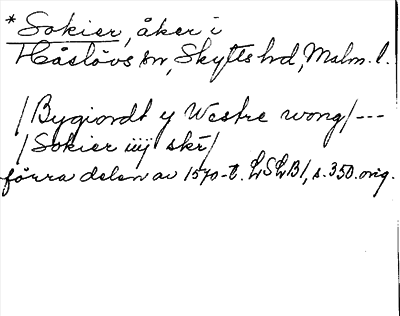 * Sokier, åker i
Håslövs sn, Skytts hd, Malm. l.
/Bygiordt y Westre wong/ ---
/Sokier iiij skr/
förra delen av 1570-t. LSLB1, s. 350. orig.